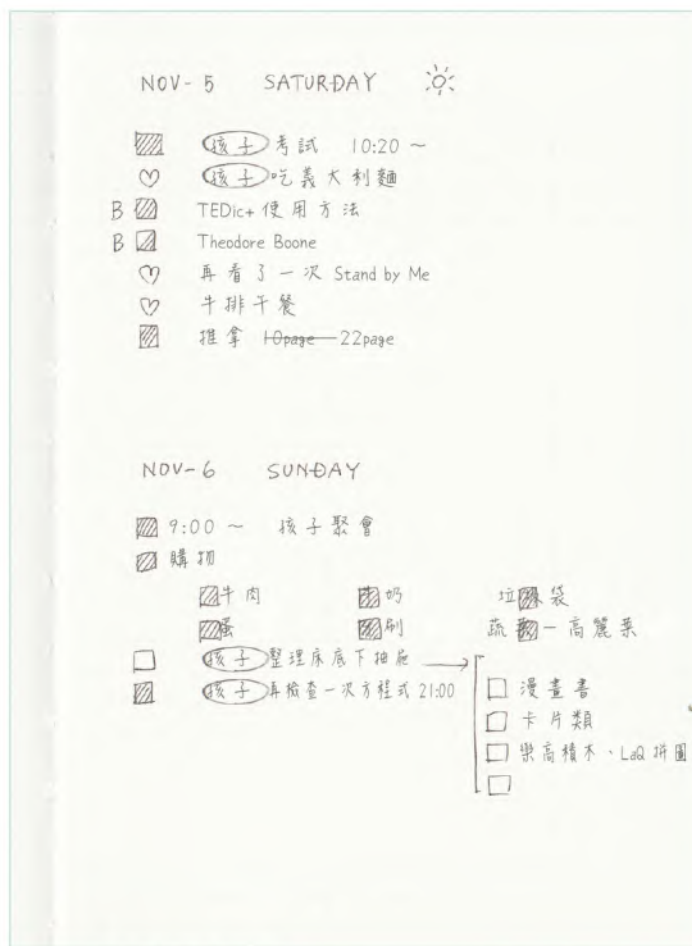 NOV-5 SATURDAY
孩子 考試 10:20 ~
孩子 吃義大利麵
B TEDic+ 使用方法
B Theodore Boone
再看了一次 Stand by Me
牛排午餐
推拿 10page 22page
NOV-6 SUNDAY
9:00 ~ 孩子聚會
購物
牛肉 奶 垃 袋
蛋 刷 蔬 一高麗菜
孩子 整理床底下抽屜
孩子 再檢查一次方程式 21:00
漫畫書
卡片類
樂高積木、LaQ 拼圖